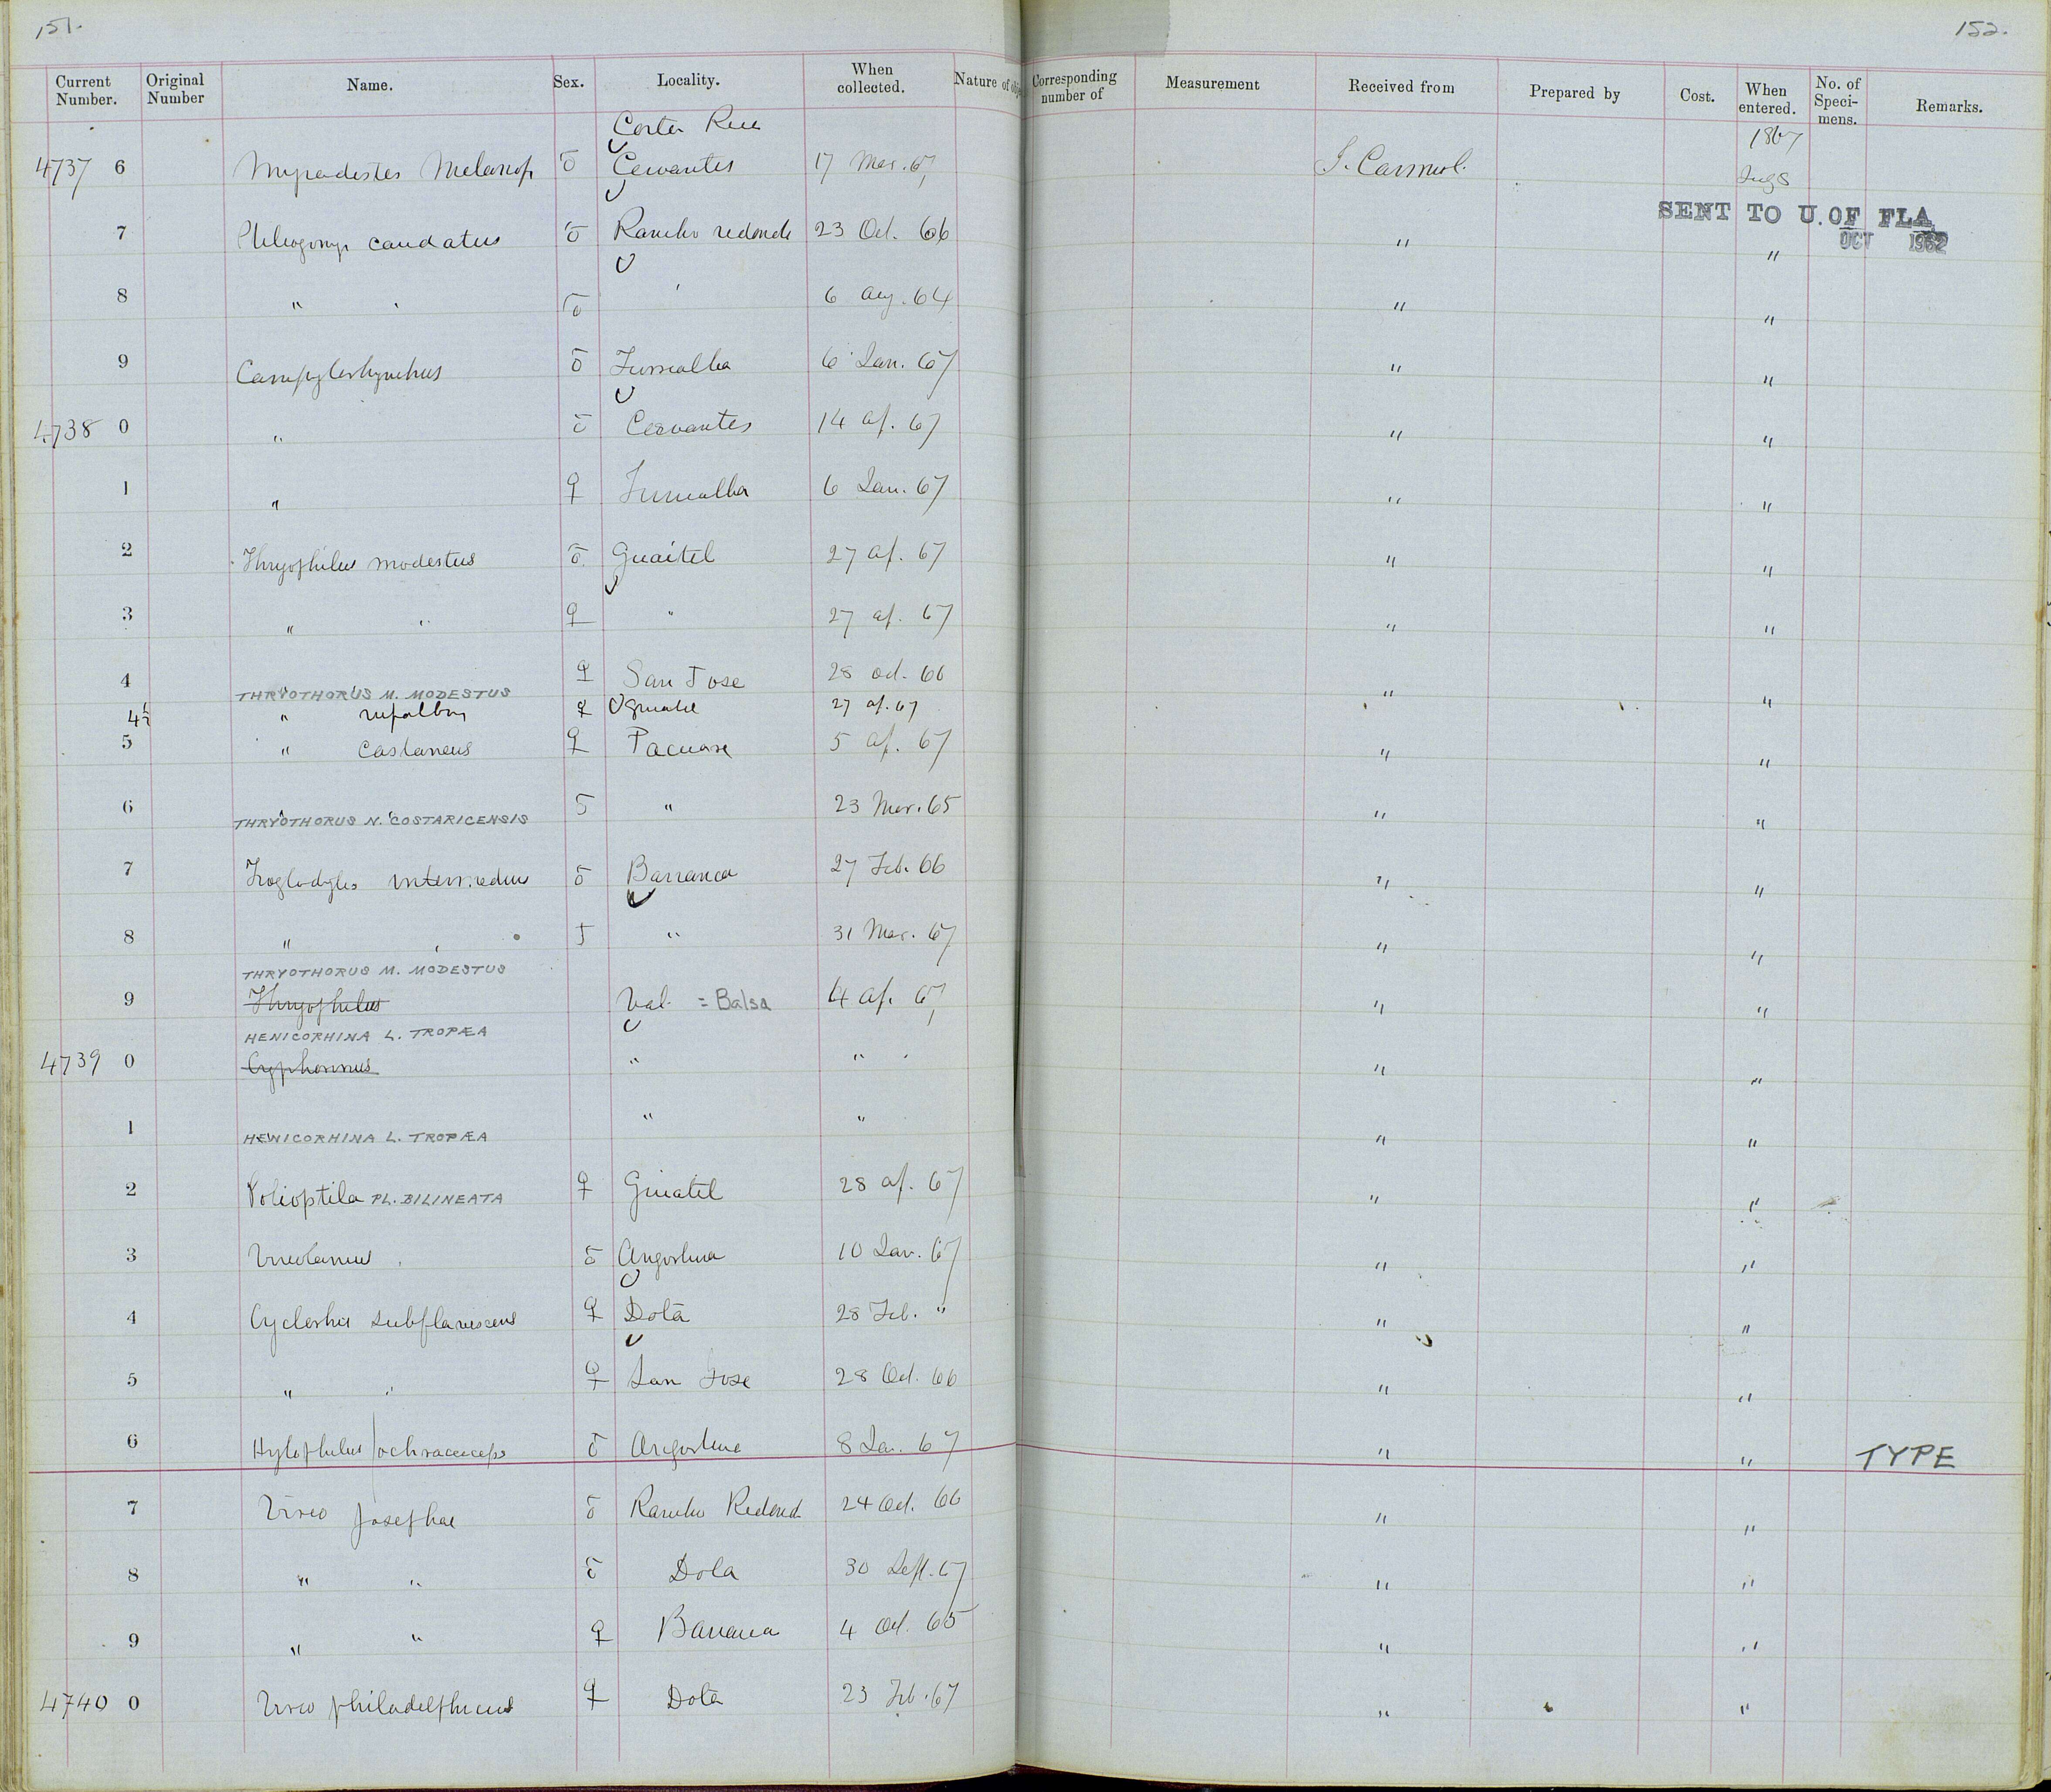 151. 152.
Current Number. Original Number Name. Sex. Locality. When collected. Nature of Corresponding number of Measurement Received from Prepared by Cost. When entered. No. of Specimens. Remarks.
Costa Rica 1867
4737 6 Myiadestes Melanop ♂ Cervantes 17 Mar. 67 J. Carmiol.
SENT TO U. OF FLA
OCT 1962
7 caudatus ♂ Rancho redondo 23 Oct. 66 " "
8 " " ♂ ' 6 Aug. 64 " "
9 Campylorhynchus ♂ Turrialba 6 Jan. 67 " "
4738 0 " ♂ Cervantes 14 Ap. 67 " "
1 " ♀ Turrialba 6 Jan. 67 " "
2 Thryophilus modestus ♂ Guaitel 27 Ap. 67 " "
3 " " ♀ " 27 Ap. 67 " "
4 " " ♀ San Jose 28 Oct. 66 " "
THRYOTHORUS M. MODESTUS
4½ " rufalbus ♀ Guaitel 27 Ap. 67
5 " Castaneus ♀ Pacuare 5 Ap. 67 " "
6 " " ♂ " 23 Mar. 65 " "
THRYOTHORUS N. COSTARICENSIS
7 Troglodytes intermedius ♂ Barranca 27 Feb. 66 " "
8 " " ♂ " 31 Mar. 67 " "
THRYOTHORUS M. MODESTUS
9 Thryophilus Val. = Balsa 4 Ap. 67 " "
HENICORHINA L. TROPÆA
4739 0 Cyphorinus " " " "
1 " " " " "
HENICORHINA L. TROPÆA
2 Polioptila PL. BILINEATA ♀ Guaitel 28 Ap. 67 " "
3 Vireolanius ♂ Angostura 10 Jan. 67 " "
4 Cyclorhis subflavescens ♀ Dota 28 Feb. " " "
5 " " ♀ San Jose 28 Oct. 66 " "
6 Hylophilus ochraceiceps ♂ Angostura 8 Jan. 67 " " TYPE
7 Vireo Josephae ♂ Rancho Redond 24 Oct. 66 " "
8 " " ♂ Dota 30 Sept. 67 " "
9 " " ♀ Barranca 4 Oct. 65 " "
4740 0 Vireo philadelphicus ♀ Dota 23 Feb. 67 " "